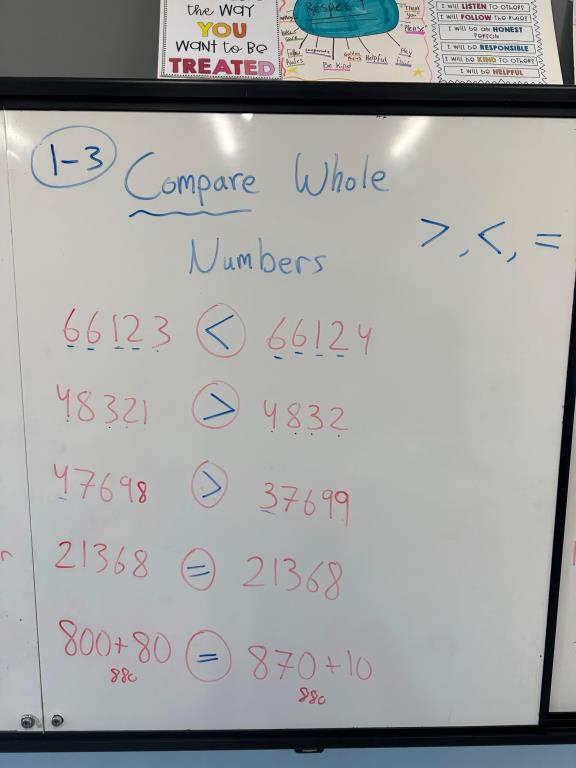 the WAY
YOU
WANT to Be
TREATED
Respect
Be Kind
Helpful
Play
Fair
Follow
Rules
I will LISTEN to others
I will FOLLOW the rules
I will be an HONEST
PERSON
I will be RESPONSIBLE
I will be KIND to others
I will be HELPFUL
1-3
Compare Whole
Numbers
>, <, =
66123 < 66124
48321 > 4832
47698 > 37699
21368 = 21368
800+80 = 870+10
880
880